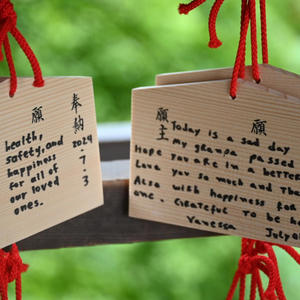 願
奉納
2024
7
3
health,
safety, and
happiness
for all of
our loved
ones.
願
願主
Today is a sad day
my granpa passed
Hope you are in a better
Love you so much and the
Also with happiness for
one. Grateful to be
Vanessa
July